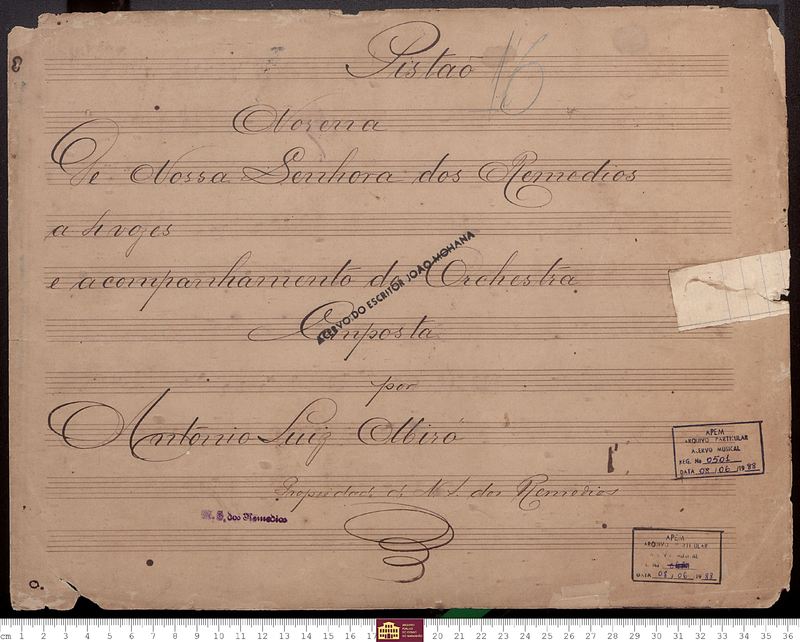 Pistaõ 16
Novena
De Nossa Senhora dos Remedios
a 4 vozes
e acompanhamento de Orchestra
ACERVO DO ESCRITOR JOÃO MOHANA
Composta
por
Antonio Luiz Miró
APEM
ARQUIVO PARTICULAR
ACERVO MUSICAL
REG. No 0501
DATA 08 / 06 / 19 88
Propriedade de N. S. dos Remedios
N. S. dos Remedios
APEM
DATA 08 / 06 / 19 88
cm 1 2 3 4 5 6 7 8 9 10 11 12 13 14 15 16 17 20 21 22 23 24 25 26 27 28 29 30 31 32 33 34 35 36